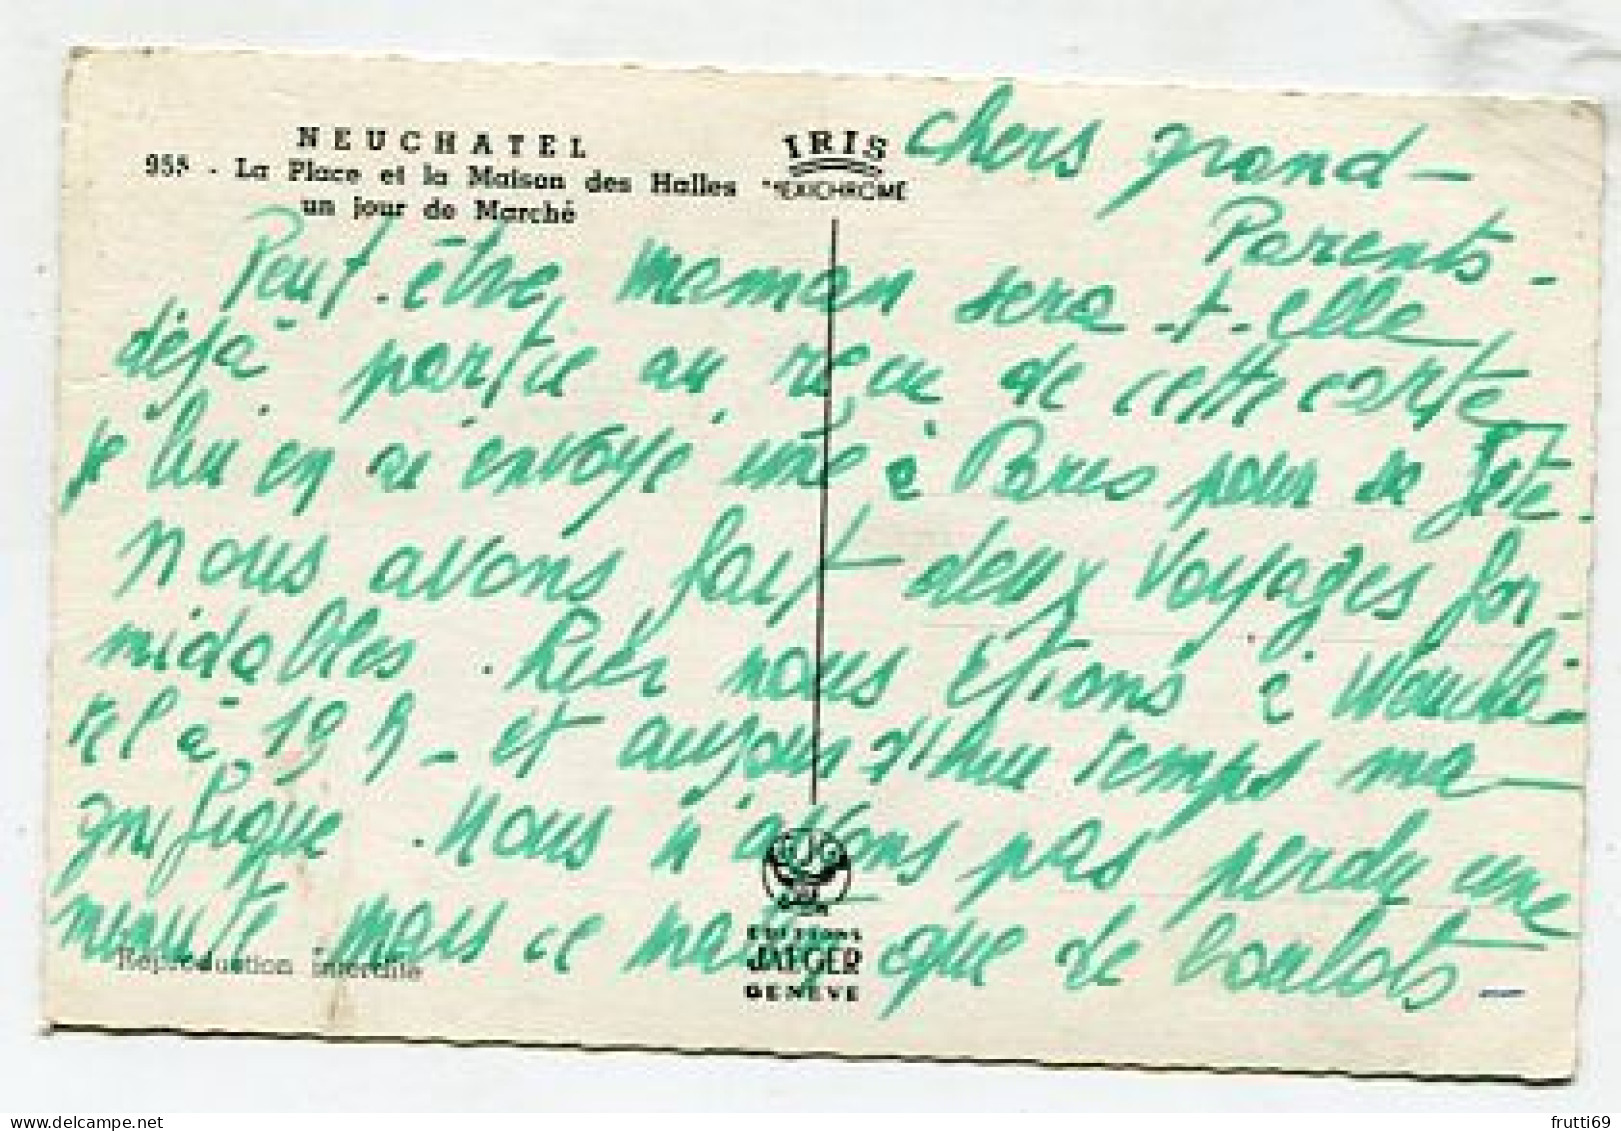 NEUCHATEL
955 - La Place et la Maison des Halles
un jour de Marché
IRIS
MEXICHROME
chers grand-
Parents-
Peut-être, maman sera-t-elle
déjà partie au reçu de cette carte
je lui en ai envoyé une à Paris pour sa fête.
Nous avons fait deux voyages for-
midables. Hier nous étions à
tel à 19 h - et aujourd'hui temps ma-
gnifique. Nous n'avons pas perdu une
minute mais ce matin que de boulots
Reproduction interdite
EDITIONS
JAEGER
GENEVE
frutti69